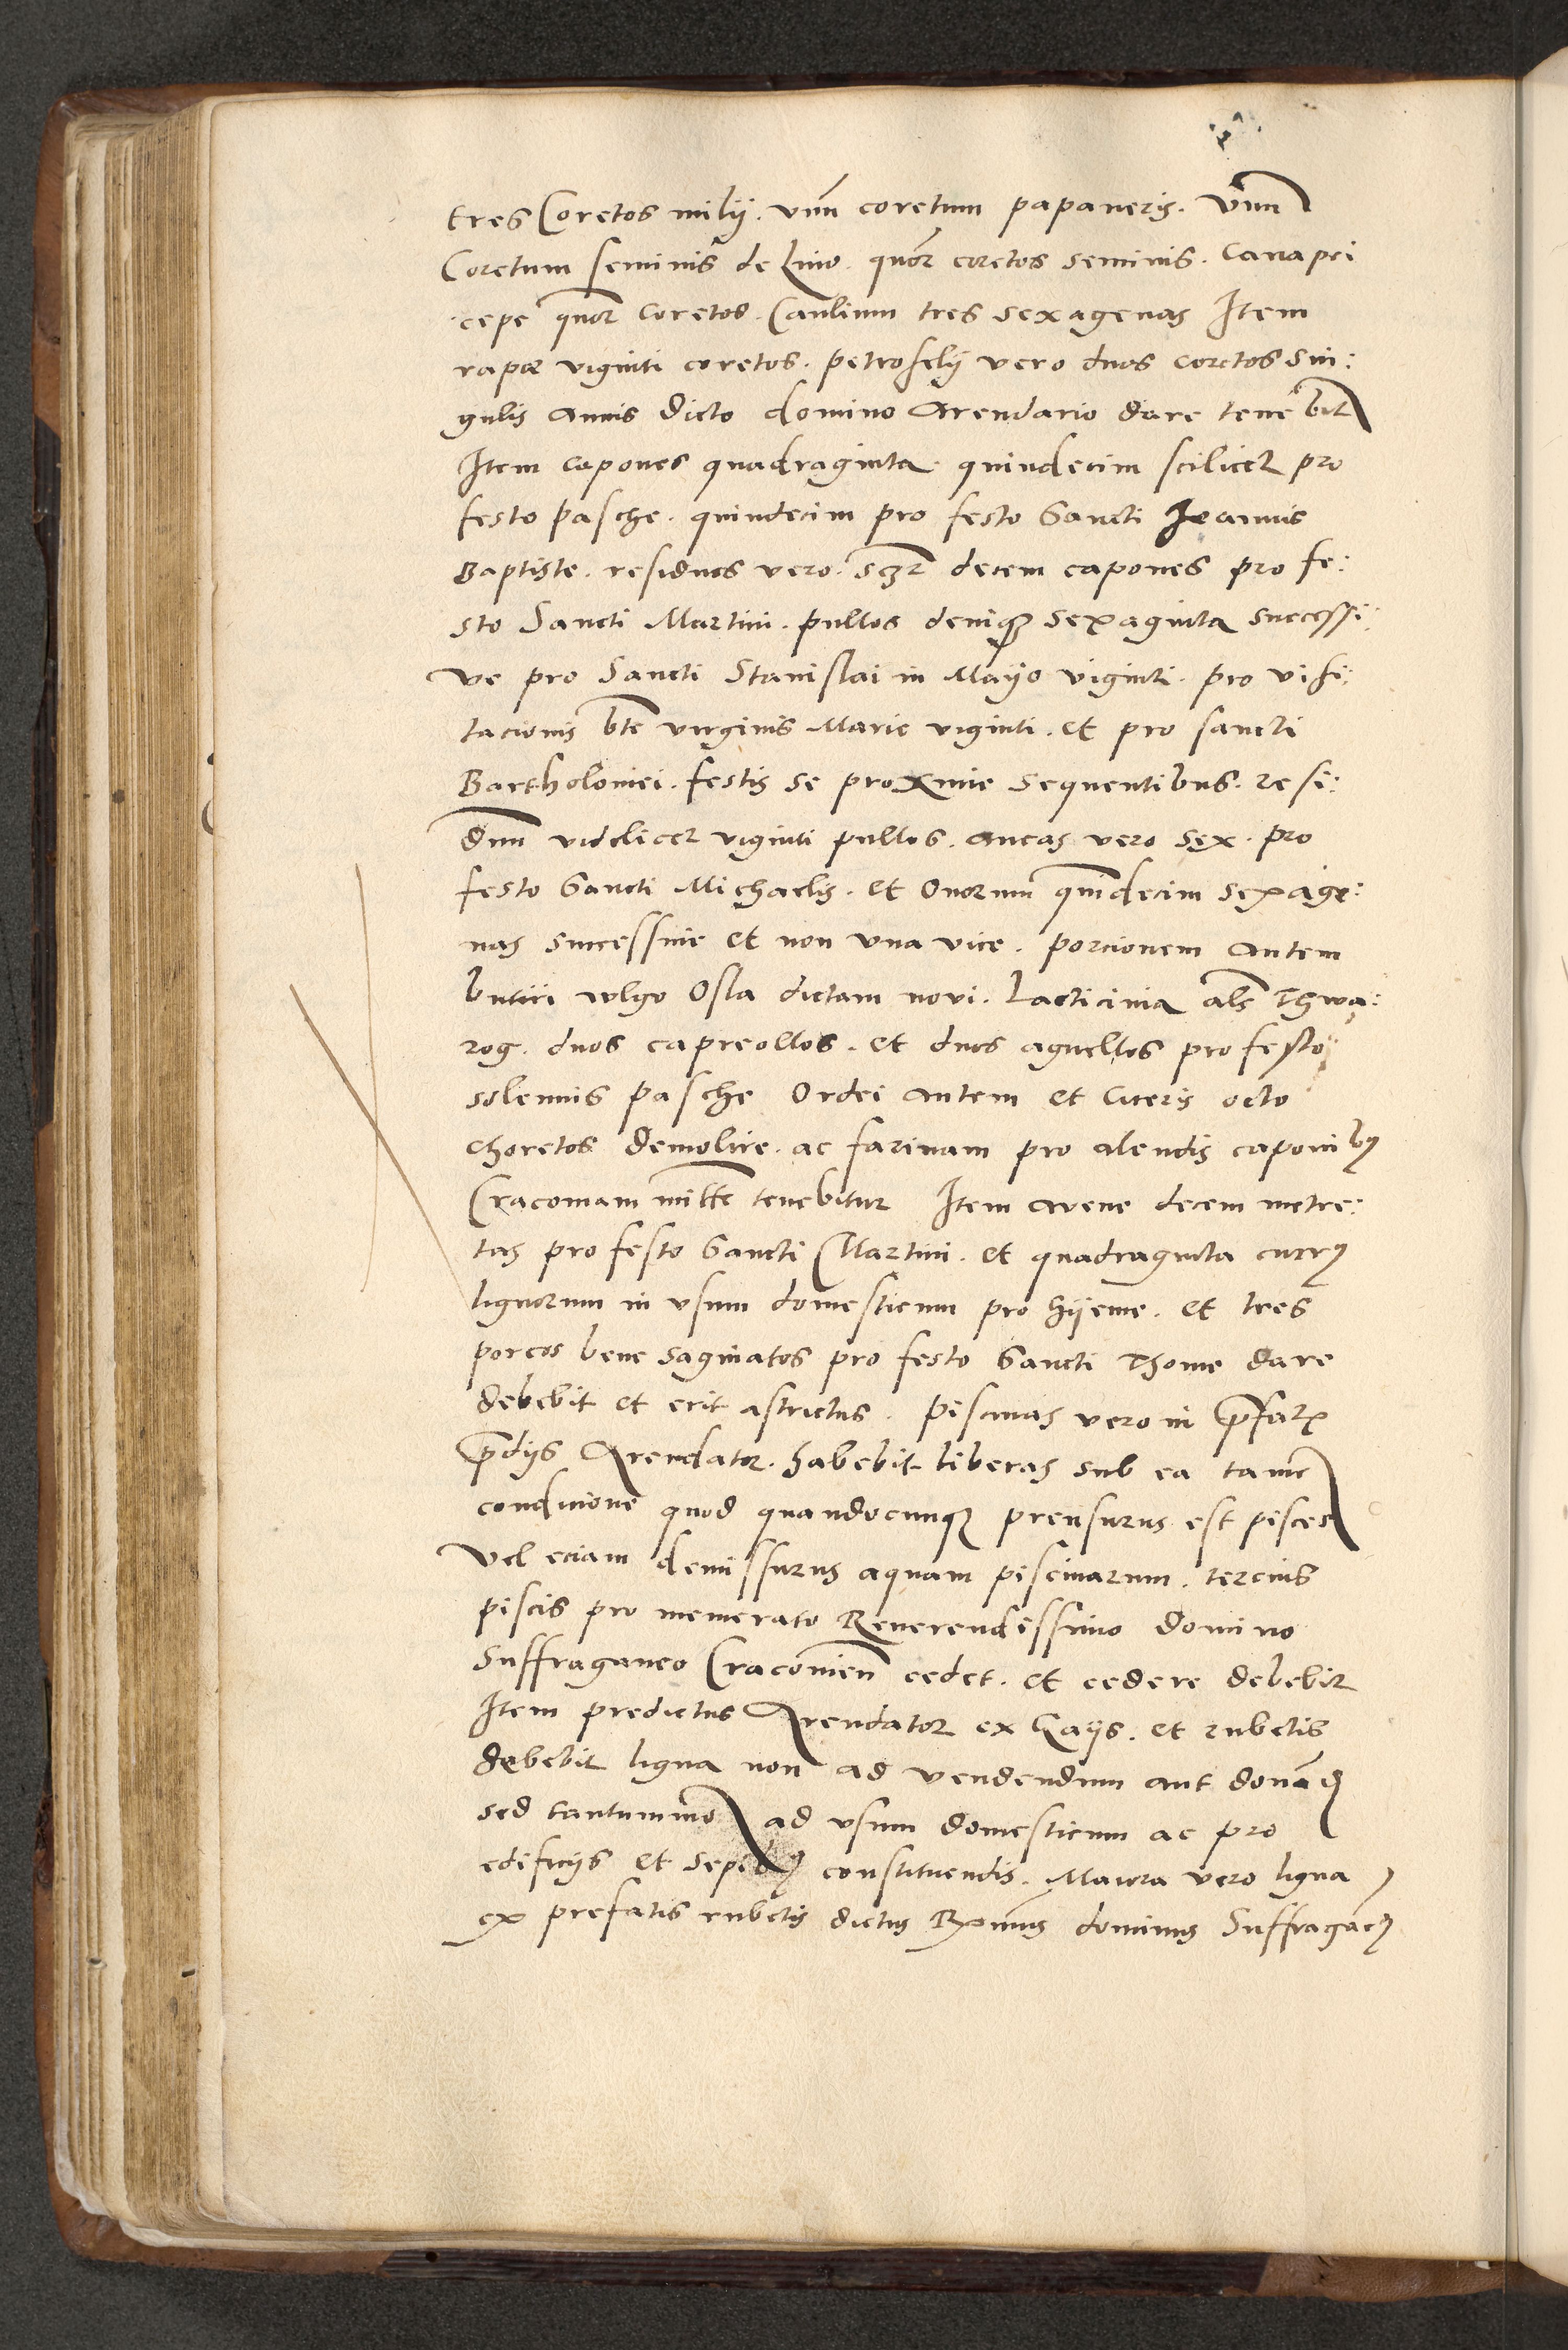 tres Coretos milij. vnū coretum papaueris. vnū
Coretum seminis de Lino. quōr coretos seminis. Canapei
cepe quōr Coretos. Caulium tres sexagenas Item
rapae viginti coretos. petrosely vero duos coretos sin:
gulis annis dicto domino Arendario dare tenebit
Item capones quadraginta quindecim scilicet pro
festo pasche. quindecim pro festo Sancti Joannis
Baptiste. residuos vero. sczr decem capones pro fe:
sto Sancti Martini. pullos deniqꝫ sexaginta successi:
ve pro Sancti Stanislai in Mayo viginti. pro visi:
tacionis bte virginis Marie viginti. et pro sancti
Bartholomei. festis se proxime sequentibus. resi:
duū videlicet viginti pullos. aucas vero sex. pro
festo Sancti Michaelis. et Ouorum quīdecim sexage:
nas successiue et non vna vice. porcionem autem
butiri wlgo Osla dictam novi. Lacticinia als Thwa:
rog. duos capreollos. et duos agnellos pro festo
solennis pasche Ordei autem et Citeris octo
Choretos demolire. ac farinam pro alendis caponibꝫ
Cracouiam mitte tenebitur Item avene decem metre:
tas pro festo Sancti Martini. et quadraginta currꝫ
lignorum in vsum domesticum pro hijeme. et tres
porcos bene saginatos pro festo Sancti Thome dare
debebit et erit astrictus. piscinas vero in p̄fatꝭ
p̄dijs Arendator. habebit liberas sub ea tamē
condicione quod quandocunqꝫ prensurus est pisces
vel eciam demissurus aquam piscinarum. tercius
piscis pro memorato Reuerendissimo domino
Suffraganeo Cracouien̄ cedet. et cedere debebit
Item predictus Arendator ex Gays. et rubetis
debebit ligna non ad vendendum aut donādū
sed tantummō ad vsum domesticum ac pro
edificijs et sepibꝫ constituendis. Maiora vero ligna
ex prefatis rubetis dictus Rx̄mus dominus Suffraganeꝫ